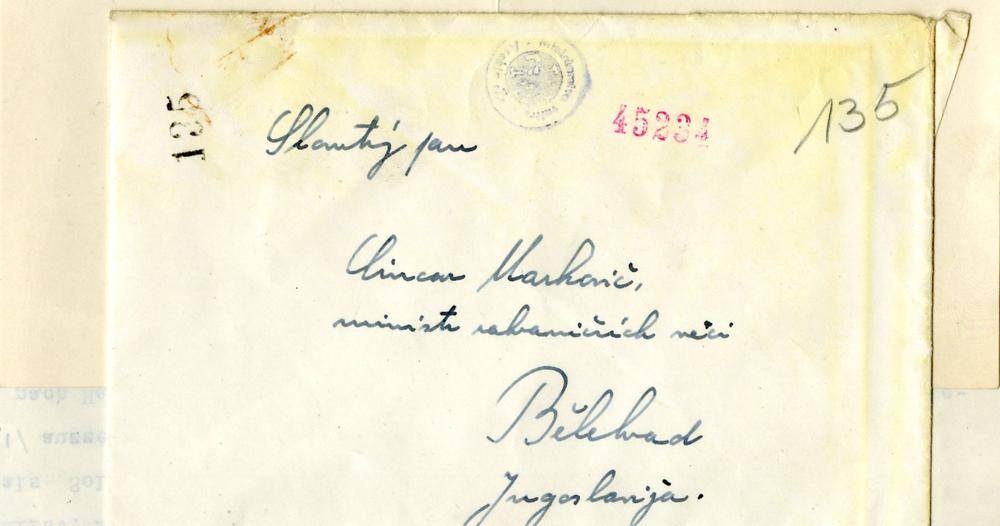 135
45234
135
Slovutný pan
Cincar Markovič,
ministr zahraničních věcí
Bělehrad
Jugoslavija.
nach